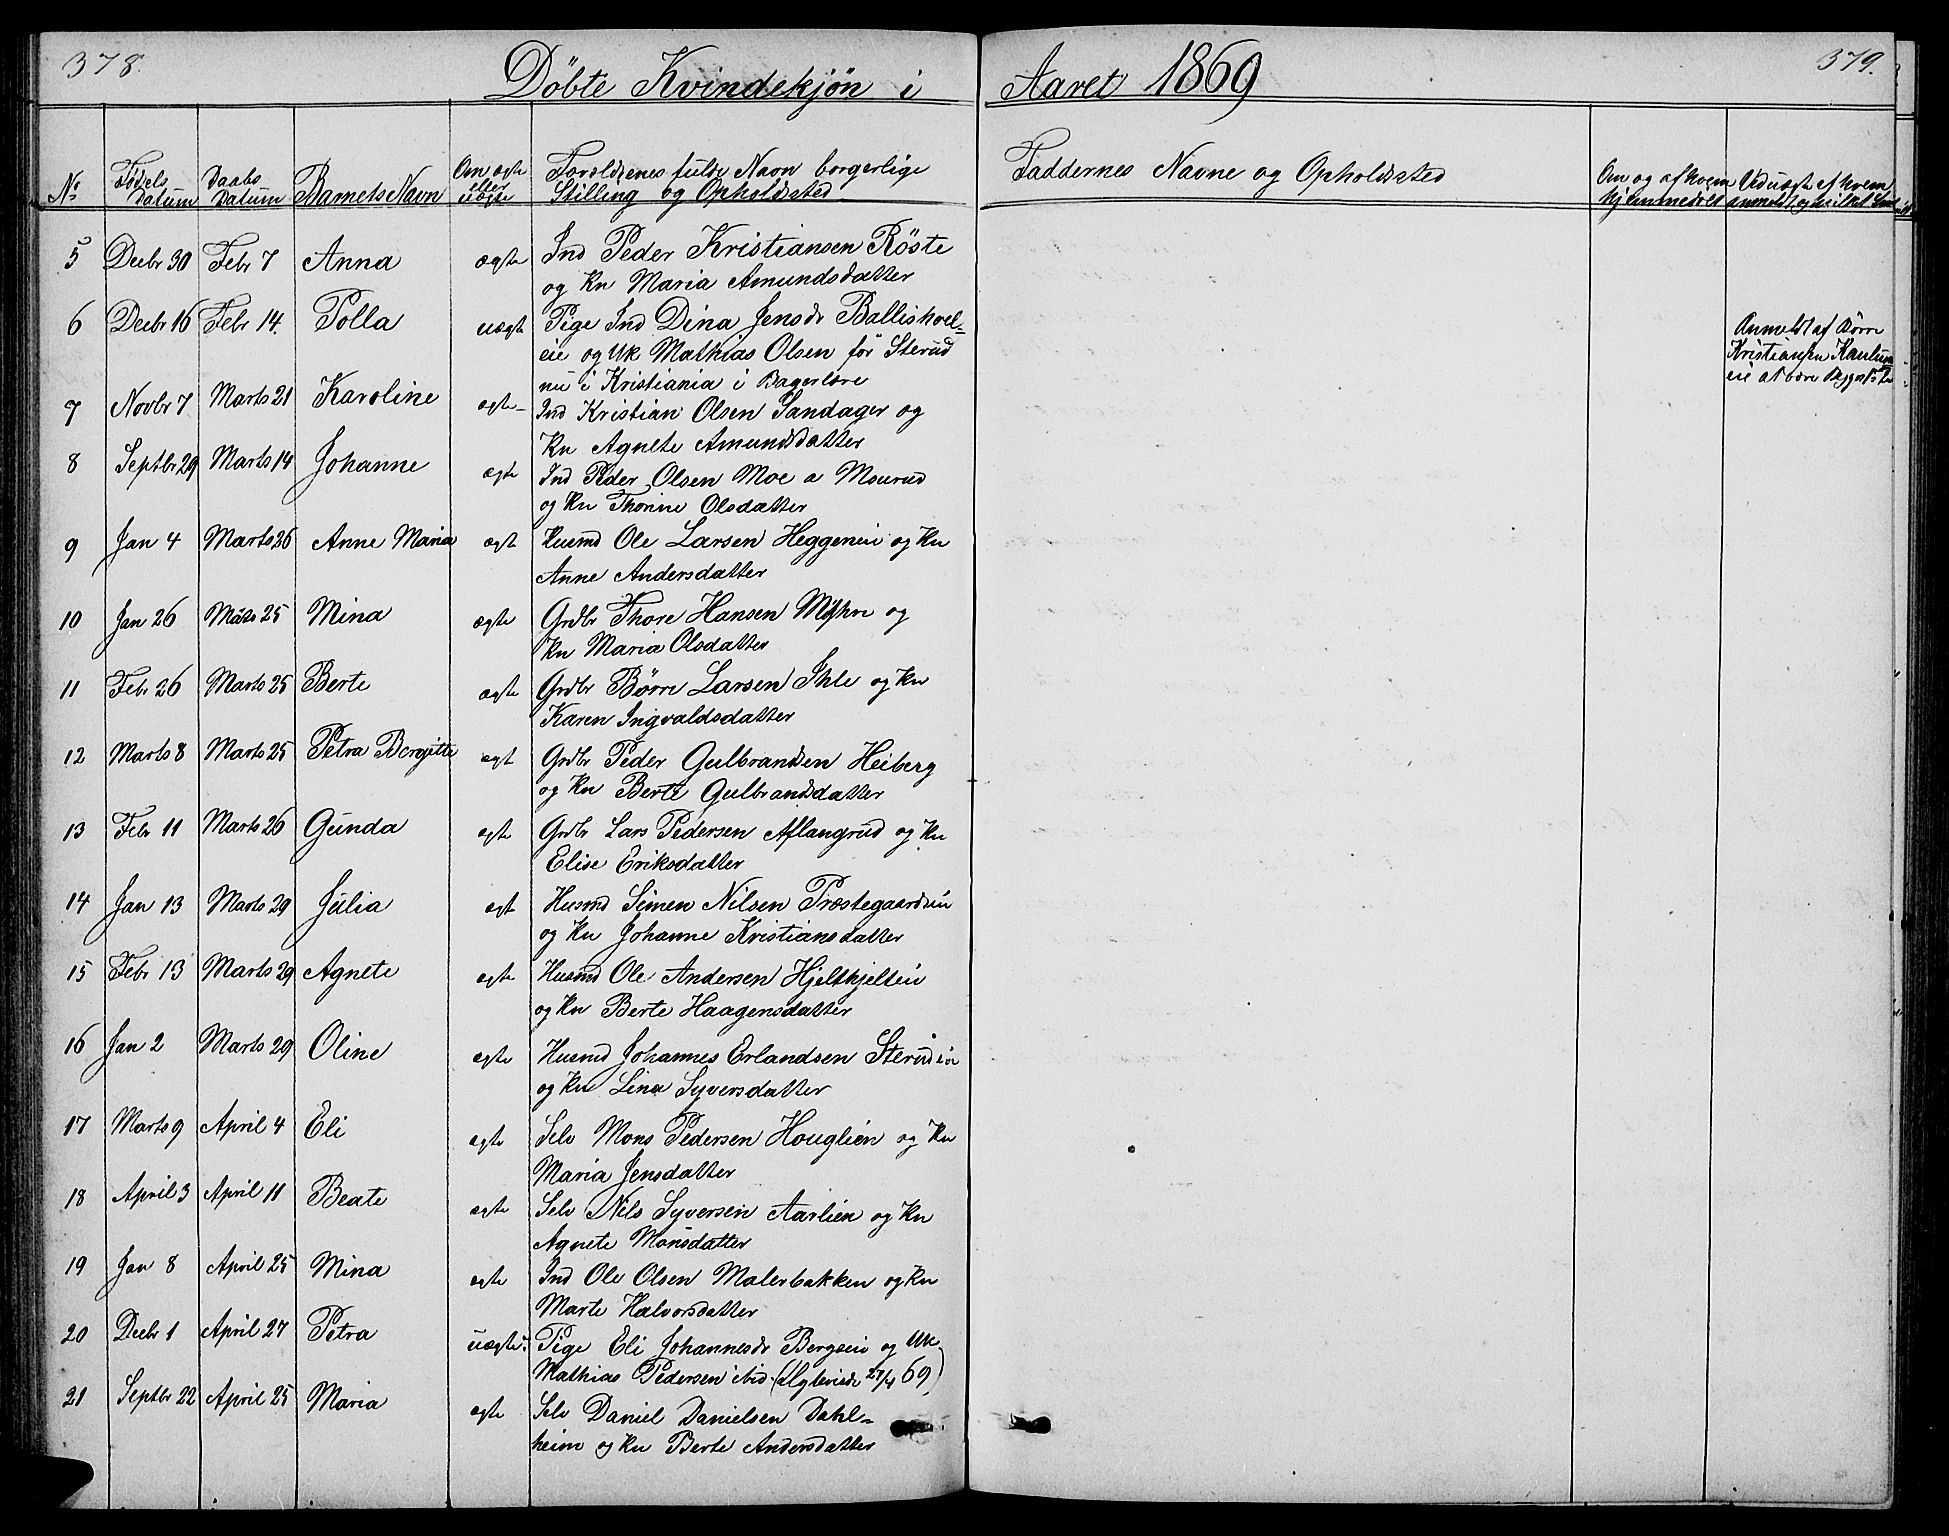 378.
Döbte Kvindekjön i Aaret 1869
379.
No Fødsels Datum Daabs Datum Barnets Navn Om ægte eller uægte Foreldrenes fulde Navn borgerlige Stilling og Opholdssted Faddernes Navne og Opholdssted Om og af hvem hjemmedöbt
5 Decbr 30 Febr 7 Anna ægte Ind Peder Kristiansen Röste
og Kn Maria Amundsdatter
6 Decbr 16 Febr 14. Polla uægte Pige Ind Dina Jensdr Balliskvel=
eie og Uk Mathias Olsen för Sterud
nu i Kristiania i Bagerlære
Anmeldt af Børre
Kristiansen
eie at være
7 Novbr 7 Marts 21 Karoline ægte Ind Kristian Olsen Sandager og
Kn Agnete Amundsdatter
8 Septbr 29 Marts 14 Johanne ægte Ind Peder Olsen Moe a Mourud
og Kn Thorine Olsdatter
9 Jan 4 Marts 26 Anne Maria ægt Husmd Ole Larsen Heggeneie og Kn
Anne Andersdatter
10 Jan 26 Mats 25 Mina ægte Grdbr Thore Hansen og
Kn Maria Olsdatter
11 Febr 26 Marts 25 Berte ægte Grdbr Børre Larsen Ihle og Kn
Karen Ingvaldsdatter
12 Marts 8 Marts 25 Petra Bergitte ægt Grdbr Peder Gulbrandsen Heiberg
og Kn Berte Gulbrandsdatter
13 Febr 11 Marts 26 Gunda ægte Grdbr Lars Pedersen Aflangrud og Kn
Elise Eriksdatter
14 Jan 13 Marts 29 Julia ægt Husmd Simen Nilsen Præstegaardseie
og Kn Johanne Kristiansdatter
15 Febr 13 Marts 29 Agnete ægte Husmd Ole Andersen Hjeltkjelteie
og Kn Berte Haagensdatter
16 Jan 2 Marts 29 Oline ægte Husmd Johannes Erlandsen Sterudeie
og Kn Lina Syversdatter
17 Marts 9 April 4 Eli ægte Selv Mons Pedersen Houglien og Kn
Maria Jensdatter
18 April 3 April 11 Beate ægte Selv Nils Syversen Aarlien og Kn
Agnete Monsdatter
19 Jan 8 April 25 Mina ægte Ind Ole Olsen Malerbakken og Kn
Marte Halvorsdatter
20 Decbr 1 April 27 Petra uægte Pige Eli Johannesdr Bergseie og Uk
Mathias Pedersen ibid (Ægteviede 27/4 69)
21 Septbr 22 April 25 Maria ægte Selv Daniel Danielsen Dahl=
heim og Kn Berte Andersdatter